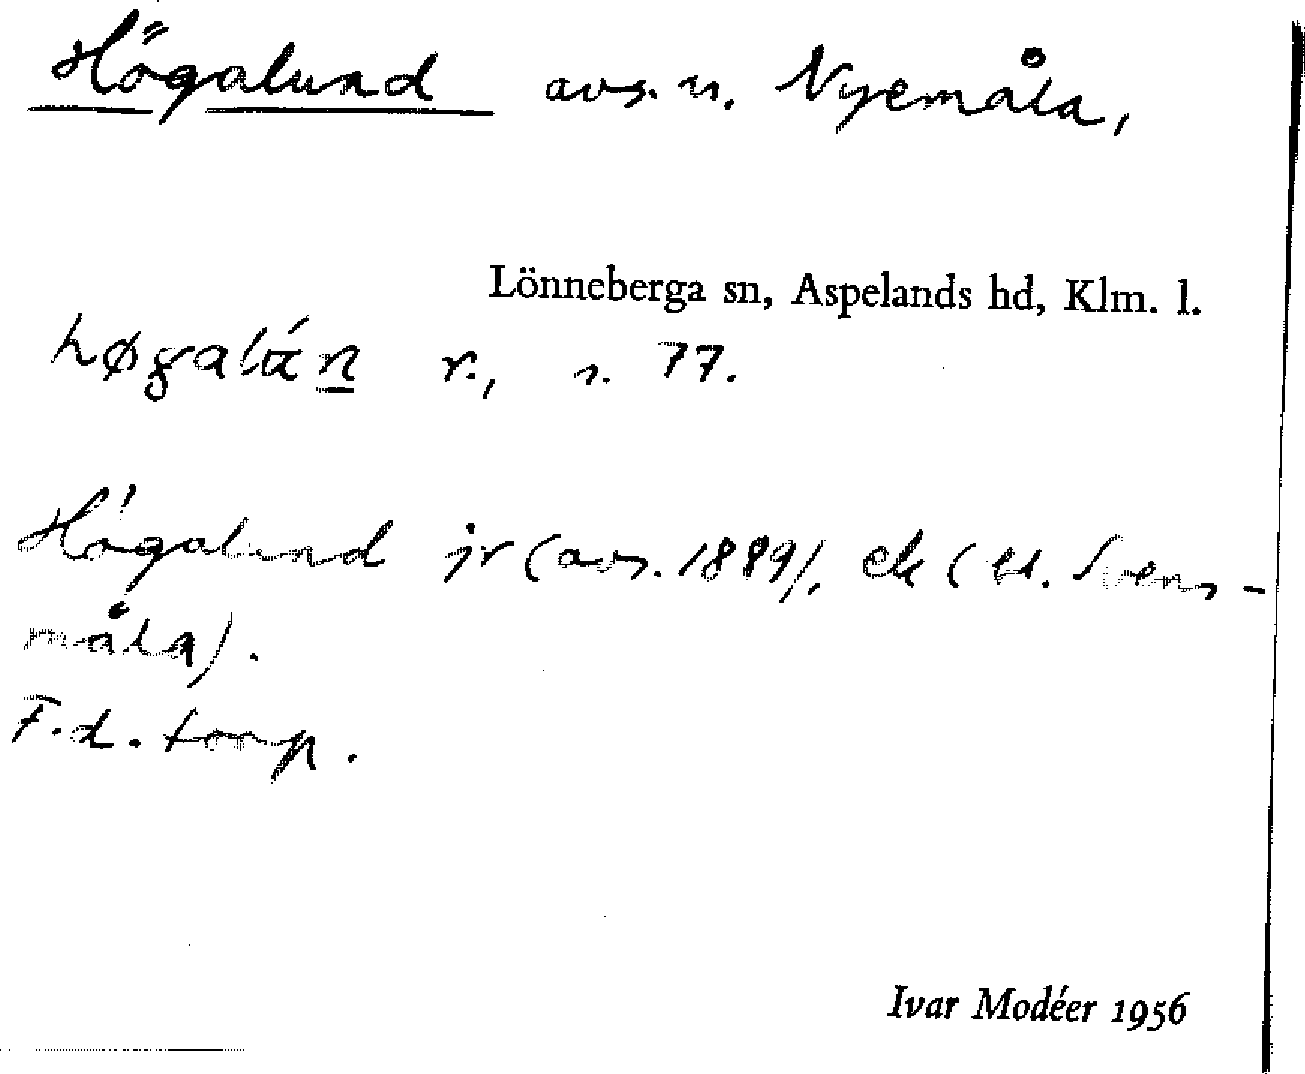 Högalund avs. u. Nyemåla,
Lönneberga sn, Aspelands hd, Klm. l.
høgalún r., s. 77.
Högalund jr (avs. 1889), ek (bl. Svens-
måla).
F.d. torp.
Ivar Modéer 1956